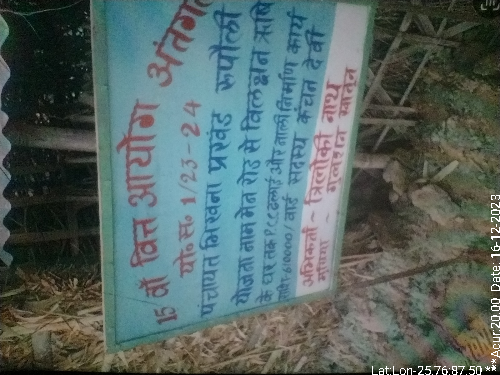 15 वॉ वित्त आयोग अंतर्गत
यो०स० 1/23-24
पंचायत भिखना प्रखंड रूपौली
योजना नाम मेन रोड से विलक्षन ऋषि
के घर तक P.C.C ढलाई और नाली निर्माण कार्य
राशि 610000/ वार्ड सदस्य कंचन देवी
अभिकर्ता ~ त्रिलोकी नाथ
मुखिया - गुलशन खातुन
Lat Lon-2576,87.50 ***Acur:20.00 Date: 16-12-2023